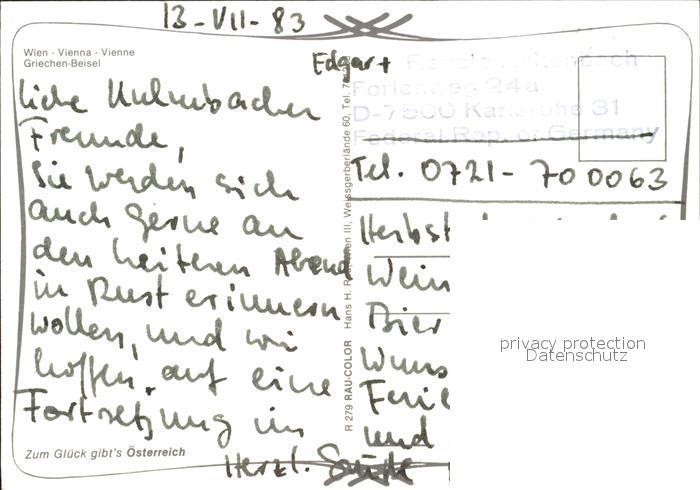 13-VII-83
Wien - Vienna - Vienne
Griechen-Beisel
Edgar +
Forlenweg 24a
D-7500 Karlsruhe 31
Federal Rep. of Germany
Tel. 0721-700063
Liebe Kulmbacher
Freunde,
Sie werden sich
auch gerne an
den heiteren Abend
in Rust erinnern
wollen, und wir
hoffen, auf eine
Fortsetzung im
Herbst
Wein
Bier
Wuns
Ferie
und
Herzl. Grüße
Zum Glück gibt's Österreich
R 279 RAU-COLOR Hans H. Rau, Wien III, Weissgerberlände 60, Tel.
privacy protection
Datenschutz